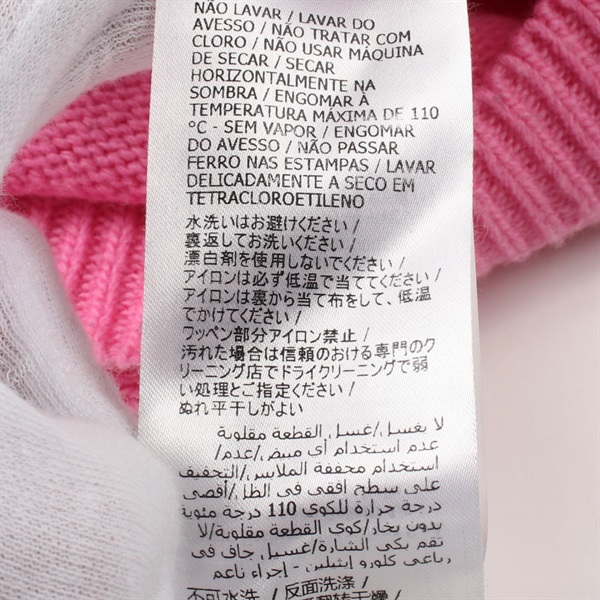 NÃO LAVAR / LAVAR DO
AVESSO / NÃO TRATAR COM
CLORO / NÃO USAR MÁQUINA
DE SECAR / SECAR
HORIZONTALMENTE NA
SOMBRA / ENGOMAR À
TEMPERATURA MÁXIMA DE 110
°C - SEM VAPOR / ENGOMAR
DO AVESSO / NÃO PASSAR
FERRO NAS ESTAMPAS / LAVAR
DELICADAMENTE A SECO EM
TETRACLOROETILENO
水洗いはお避けください /
裏返してお洗いください /
漂白剤を使用しないでください /
アイロンは必ず低温で当ててください /
アイロンは裏から当て布をして、低温
でかけてください /
ワッペン部分アイロン禁止 /
汚れた場合は信頼のおける専門のク
リーニング店でドライクリーニングで弱
い処理とご指定ください /
ぬれ平干しがよい
لا يغسل/غسل القطعة مقلوبة
/عدم استخدام أي مبيض/عدم
استخدام مجففة الملابس/التجفيف
على سطح افقي في الظل/أقصى
درجة حرارة للكوي 110 درجة مئوية
بدون بخار/كوي القطعة مقلوبة/
تقم بكي الشارة/غسيل جاف في
رباعي كلورو إيثيلين - إجراء ناعم
不可水洗 / 反面洗涤 /